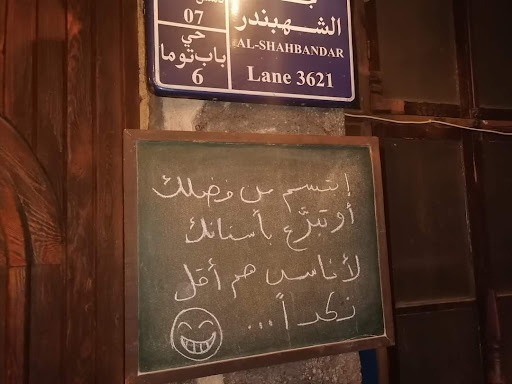 07
حي
باب توما
6
الشهبندر
AL-SHAHBANDAR
Lane 3621
إبتسم من فضلك
أو تبرّع بأسنانك
لأناس هم أقل
نكداً...